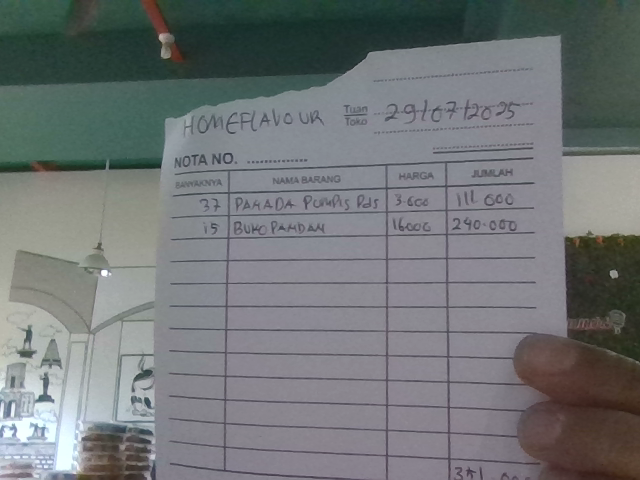 HOMEFLAVOUR
Tuan Toko 29/07/2025
NOTA NO. ..............
BANYAKNYA NAMA BARANG HARGA JUMLAH
37 3.600 111 000
15 BUKO PANDAN 16000 240.000